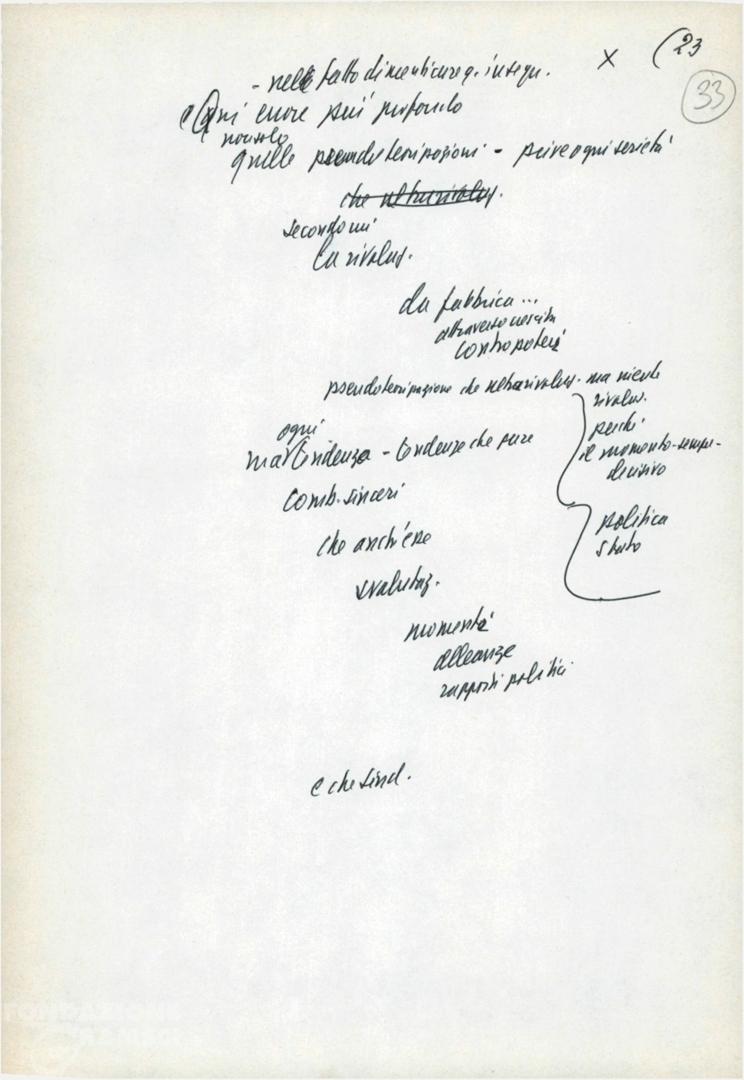 x (23
33
- nel fatto dimenticare q. insegn.
e Qui errore più profondo
nonsolo
quelle pseudoteorizzazioni - prive ogni serietà
che ultrarivoluz.
secondo cui
la rivoluz.
da fabbrica...
attraverso crescita
contropoteri
pseudoteorizzazione che ultrarivoluz. ma niente
rivoluz.
perché
il momento-sempre-
decisivo
politica
Stato
ogni
tendenza - tendenze che pure
Comb. sinceri
che anch'esse
svalutaz.
momento
alleanze
rapporti politici
e che sind.
FONDAZIONE